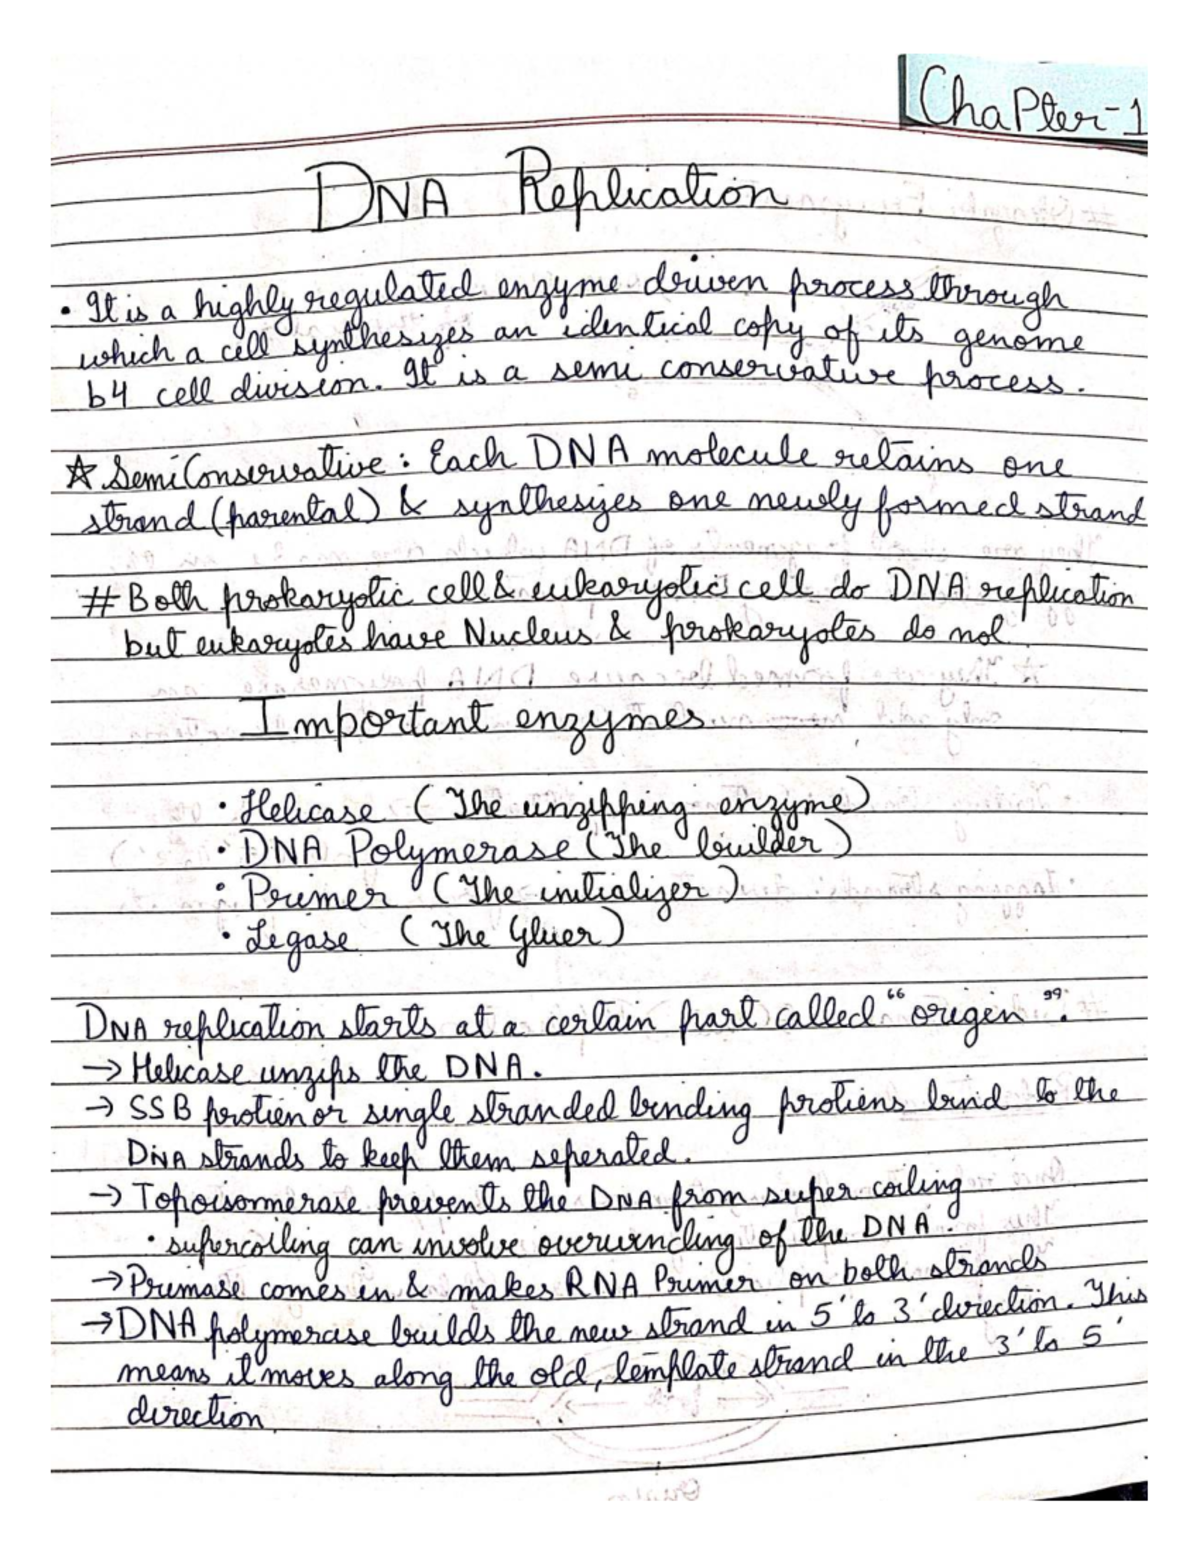 ChaPter-1
DNA Replication
• It is a highly regulated enzyme driven process through
which a cell synthesizes an identical copy of its genome
b4 cell division. It is a semi conservative process.
☆ SemiConservative: Each DNA molecule retains one
strand (parental) & synthesizes one newly formed strand
# Both prokaryotic cell & eukaryotic cell do DNA replication
but eukaryotes have Nucleus & prokaryotes do not
Important enzymes
• Helicase (The unzipping enzyme)
• DNA Polymerase (The builder)
• Primer (The initializer)
• Legase (The Gluer)
DNA replication starts at a certain part called "origen".
→ Helicase unzips the DNA.
→ SSB protien or single stranded binding protiens bind to the
DNA strands to keep them seperated.
→ Topoisomerase prevents the DNA from super coiling
• supercoiling can involve overwinding of the DNA.
→ Primase comes in & makes RNA Primer on both strands
→ DNA polymerase builds the new strand in 5' to 3' direction. This
means it moves along the old, template strand in the 3' to 5'
direction